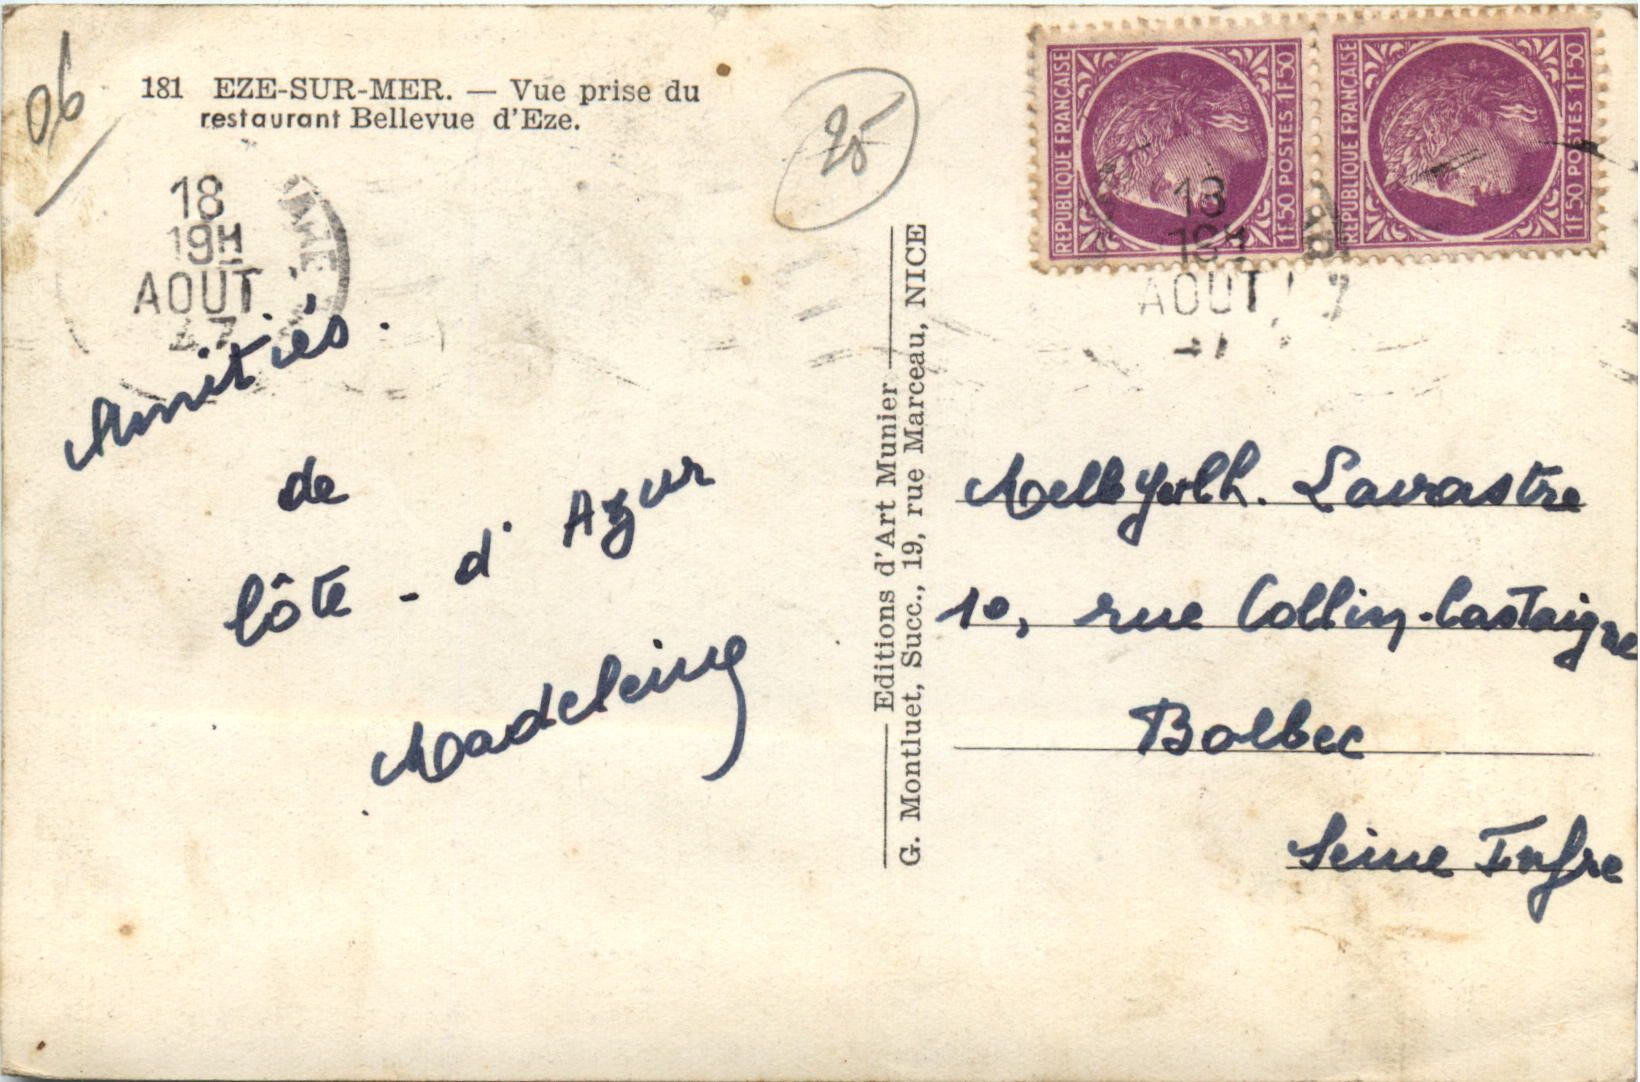 06
181 EZE-SUR-MER. — Vue prise du
restaurant Bellevue d'Eze.
25
18
19H
AOUT
47
Amitiés.
de
Côte - d'Azur
Madeleine
Editions d'Art Munier
G. Montluet, Succ., 19, rue Marceau, NICE
REPUBLIQUE FRANÇAISE
1F50 POSTES 1F50
REPUBLIQUE FRANÇAISE
1F50 POSTES 1F50
18
AOUT
Lavastre
10, rue Collin-Castaigne
Bolbec
Seine Infre